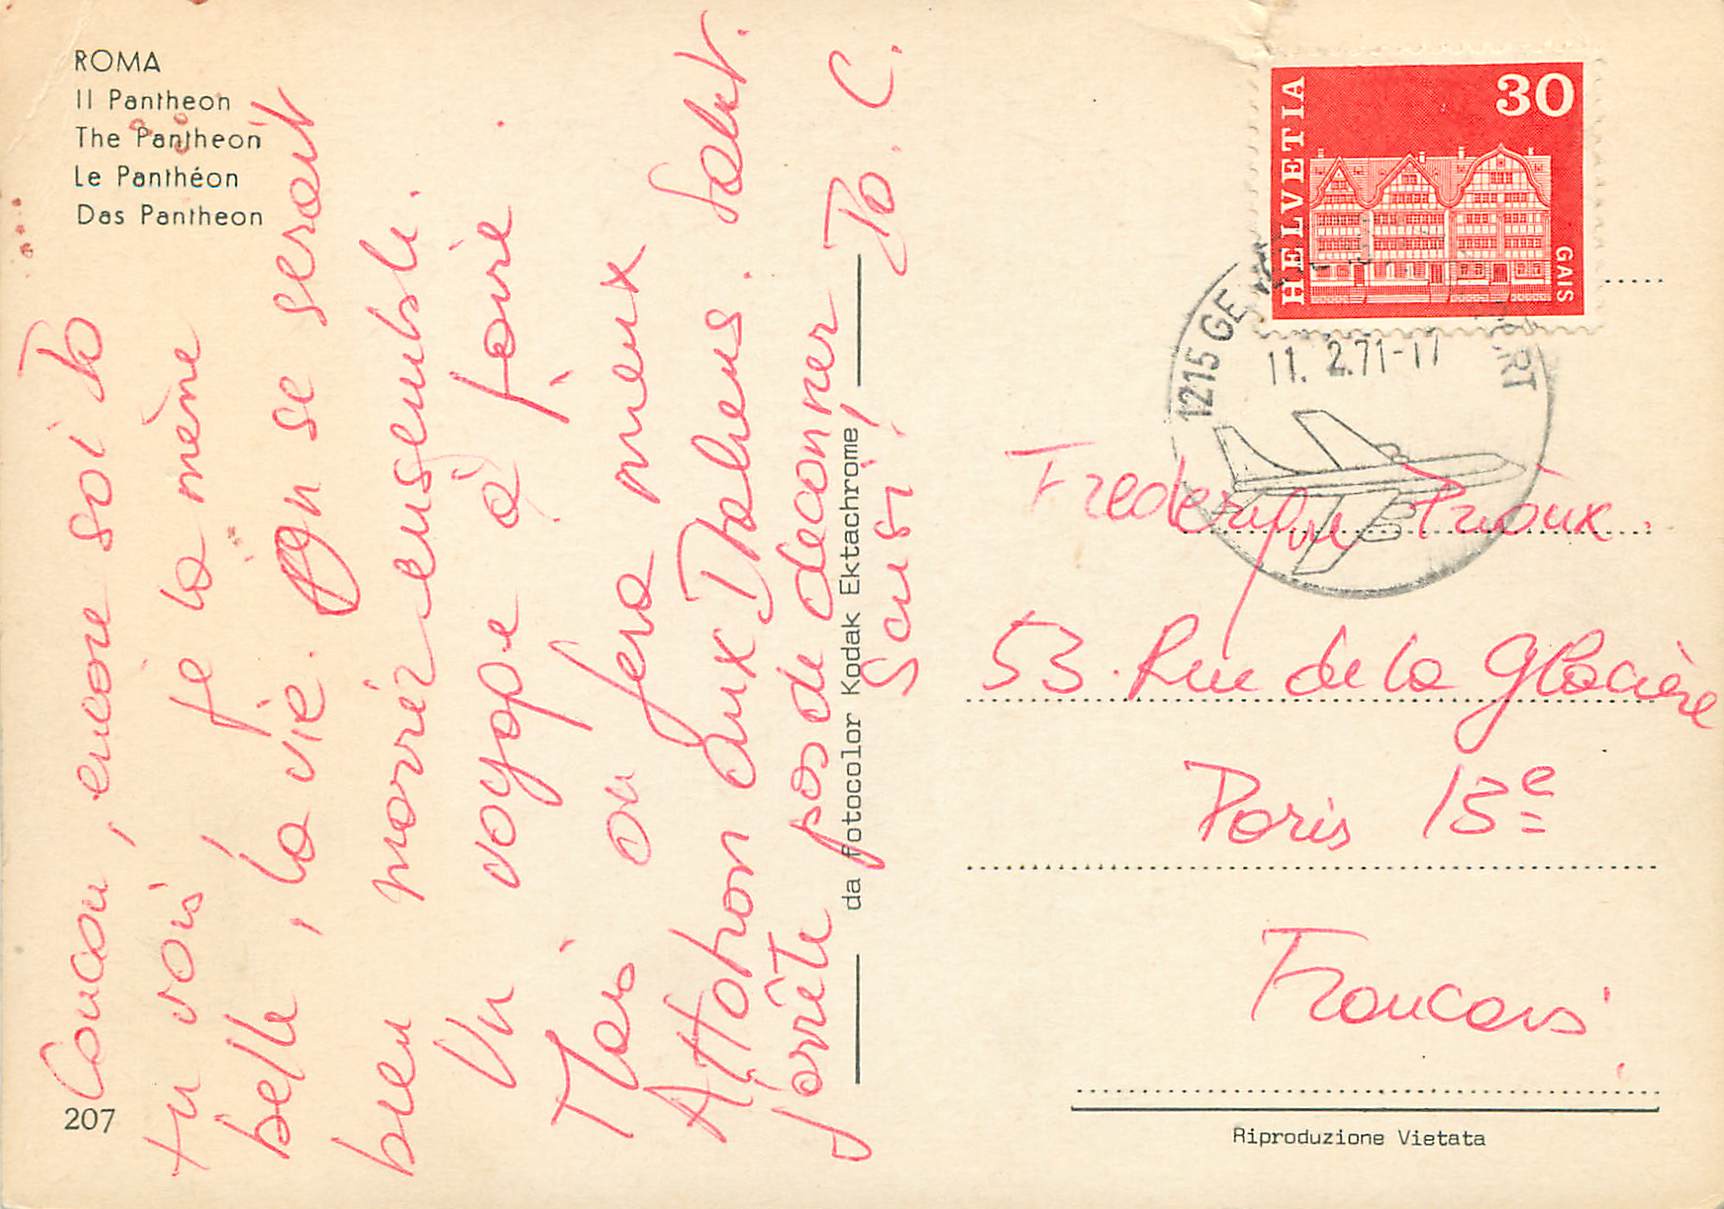 ROMA
Il Pantheon
The Pantheon
Le Panthéon
Das Pantheon
207
Coucou, encore soi Jo
tu vois je la mène
belle, la vie. On se serait
bien marrer ensemble.
Un voyage à faire
Mais on fera mieux
Attention aux Italiens. Salut.
J'arrête pas de deconner Jo. C.
Sausi!
da fotocolor Kodak Ektachrome
HELVETIA
30
GAIS
1215 GE
11. 2.71-17
RT
Frederique Prioux.
53. Rue de la Glacière
Paris 13e
Francais
Riproduzione Vietata